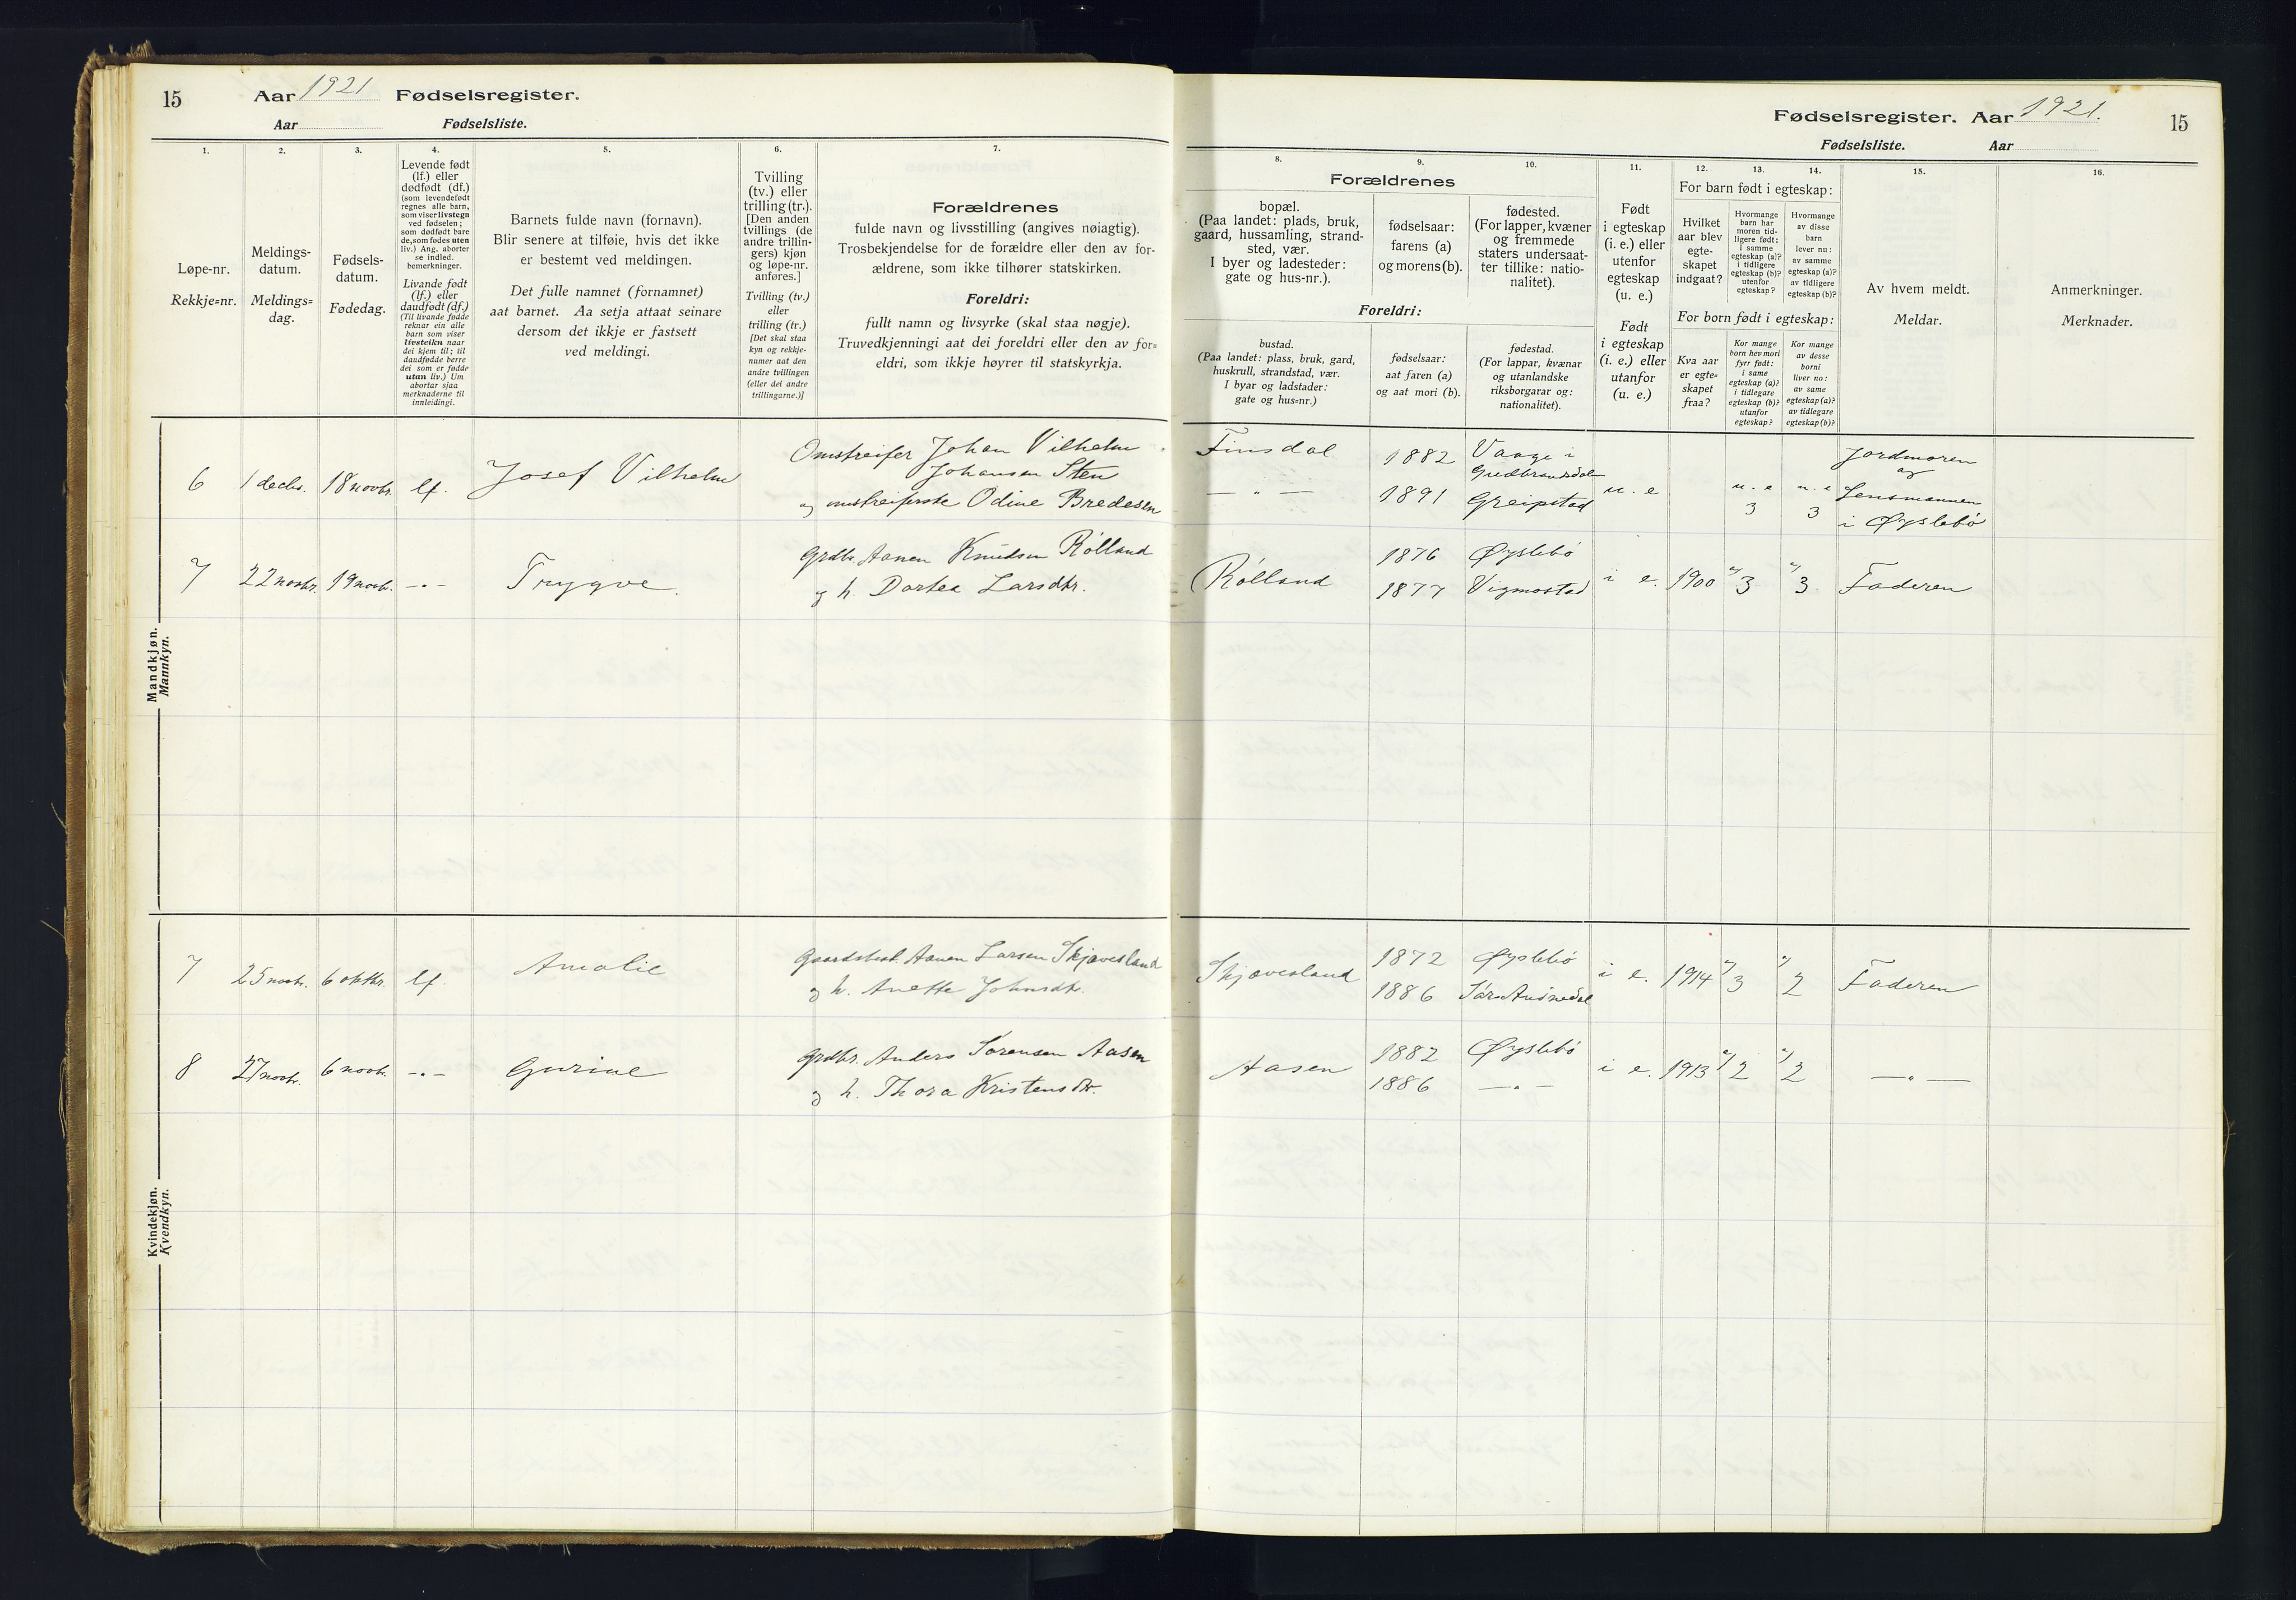 15
Aar 1921 Fødselsregister.
Aar Fødselsliste.
Fødselsregister. Aar 1921.
15
Fødselsliste. Aar
1.
2.
3.
4.
5.
6.
7.
Løpe-nr.
Rekkje=nr.
Meldings-
datum.
Meldings=
dag.
Fødsels-
datum.
Fødedag.
Levende født
(lf.) eller
dødfødt (df.)
(som levendefødt
regnes alle barn,
som viser livstegn
ved fødselen;
som dødfødt bare
de, som fødes uten
liv.) Ang. aborter
se indled.
bemerkninger.
Livande født
(lf.) eller
daudfødt (df.)
(Til livande fødde
reknar ein alle
barn som viser
livsteikn naar
dei kjem til; til
daudfødde berre
dei som er fødde
utan liv.) Um
abortar sjaa
merknaderne til
innleidingi.
Barnets fulde navn (fornavn).
Blir senere at tilføie, hvis det ikke
er bestemt ved meldingen.
Det fulle namnet (fornamnet)
aat barnet. Aa setja attaat seinare
dersom det ikkje er fastsett
ved meldingi.
Tvilling
(tv.) eller
trilling (tr.).
[Den anden
tvillings (de
andre trillin-
gers) kjøn
og løpe-nr.
anføres.]
Tvilling (tv.)
eller
trilling (tr.)
[Det skal staa
kyn og rekkje-
numer aat den
andre tvillingen
(eller dei andre
trillingarne.)]
Forældrenes
fulde navn og livsstilling (angives nøiagtig).
Trosbekjendelse for de forældre eller den av for-
ældrene, som ikke tilhører statskirken.
Foreldri:
fullt namn og livsyrke (skal staa nøgje).
Truvedkjenningi aat dei foreldri eller den av for=
eldri, som ikkje høyrer til statskyrkja.
8.
9.
10.
11.
12.
13.
14.
15.
16.
Forældrenes
bopæl.
(Paa landet: plads, bruk,
gaard, hussamling, strand-
sted, vær.
I byer og ladesteder:
gate og hus-nr.).
fødselsaar:
farens (a)
og morens (b).
fødested.
(For lapper, kvæner
og fremmede
staters undersaat-
ter tillike: natio-
nalitet).
Foreldri:
bustad.
(Paa landet: plass, bruk, gard,
huskrull, strandstad, vær.
I byar og ladstader:
gate og hus=nr.)
fødselsaar:
aat faren (a)
og aat mori (b).
fødestad.
(For lappar, kvænar
og utanlandske
riksborgarar og:
nationalitet).
Født
i egteskap
(i. e.) eller
utenfor
egteskap
(u. e.)
Født
i egteskap
(i. e.) eller
utanfor
(u. e.)
For barn født i egteskap:
Hvilket
aar blev
egte-
skapet
indgaat?
Hvormange
barn har
moren tid-
ligere født:
i samme
egteskap (a)?
i tidligere
egteskap (b)?
utenfor
egteskap?
Hvormange
av disse
barn
lever nu:
av samme
egteskap (a)?
av tidligere
egteskap (b)?
For born født i egteskap:
Kva aar
er egte=
skapet
fraa?
Kor mange
born hev mori
fyrr født:
i same
egteskap (a)?
i tidlegare
egteskap (b)?
utanfor
egteskap?
Kor mange
av desse
borni
liver no:
av same
egteskap (a)?
av tidlegare
egteskap (b)?
Av hvem meldt.
Meldar.
Anmerkninger.
Merknader.
Mandkjøn.
Mannkyn.
6 1 decbr. 18 novbr. lf. Josef Vilhelm
Omstreifer Johan Vilhelm
Johansen Sten
og omstreiferske Odine Bredesen
Finsdal 1882 Vaage i
Gudbrandsdalen
— " — 1891 Greipstad u. e
u. e 3 u. e 3
Jordmoren
og
Lensmannen
i Øyslebö
7 22 novbr. 19 novb. —"— Trygve.
Grdbr. Aanen Knudsen Rölland
og h. Dortea Larsdtr.
Rölland 1876 Øyslebö
1877 Vigmostad i e. 1900 a/3 a/3 Faderen
Kvindekjøn.
Kvendkyn.
7 25 novb. 6 oktbr. lf. Amalie
Gaardsbest. Aanen Larsen Skjævesland
og h. Anette Johnsdtr.
Skjævesland 1872 Øyslebö
1886 i e. 1914 a/3 a/2 Faderen
8 27 novb. 6 novb. —"— Gurine
Grdbr. Anders Sørensen Aasen
og h. Thora Kristensdtr.
Aasen 1882 Øyslebö
1886 — " — i e. 1913 a/2 a/2 — " —